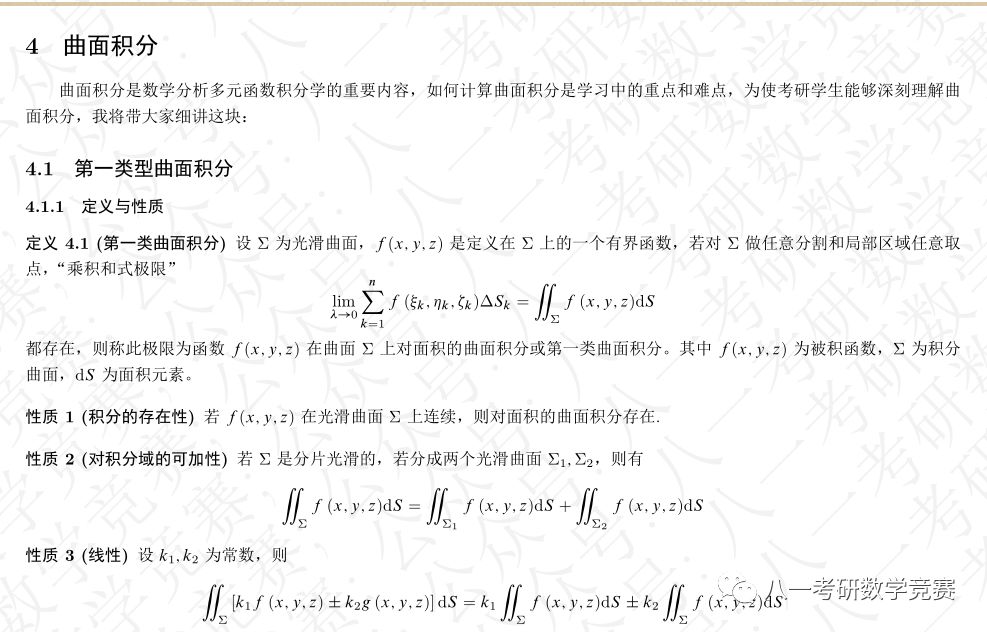 4 曲面积分
曲面积分是数学分析多元函数积分学的重要内容，如何计算曲面积分是学习中的重点和难点，为使考研学生能够深刻理解曲
面积分，我将带大家细讲这块：
4.1 第一类型曲面积分
4.1.1 定义与性质
定义 4.1 (第一类曲面积分) 设 Σ 为光滑曲面，f(x, y, z) 是定义在 Σ 上的一个有界函数，若对 Σ 做任意分割和局部区域任意取
点，“乘积和式极限”
lim_{λ→0} ∑_{k=1}^{n} f (ξ_k, η_k, ζ_k)ΔS_k = ∬_Σ f (x, y, z)dS
都存在，则称此极限为函数 f(x, y, z) 在曲面 Σ 上对面积的曲面积分或第一类曲面积分。其中 f(x, y, z) 为被积函数，Σ 为积分
曲面，dS 为面积元素。
性质 1 (积分的存在性) 若 f(x, y, z) 在光滑曲面 Σ 上连续，则对面积的曲面积分存在.
性质 2 (对积分域的可加性) 若 Σ 是分片光滑的，若分成两个光滑曲面 Σ₁, Σ₂，则有
∬_Σ f (x, y, z)dS = ∬_{Σ₁} f (x, y, z)dS + ∬_{Σ₂} f (x, y, z)dS
性质 3 (线性) 设 k₁, k₂ 为常数，则
∬_Σ [k₁f (x, y, z) ± k₂g (x, y, z)] dS = k₁ ∬_Σ f (x, y, z)dS ± k₂ ∬_Σ f (x, y, z)dS
八一考研数学竞赛